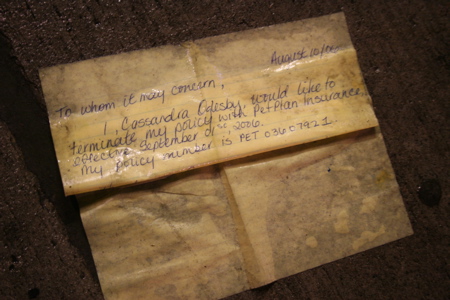 August 10/06
To whom it may concern,
I, Cassandra Odesby, would like to
terminate my policy with PetPlan Insurance,
effective September 01, 2006.
My policy number is PET 03607921